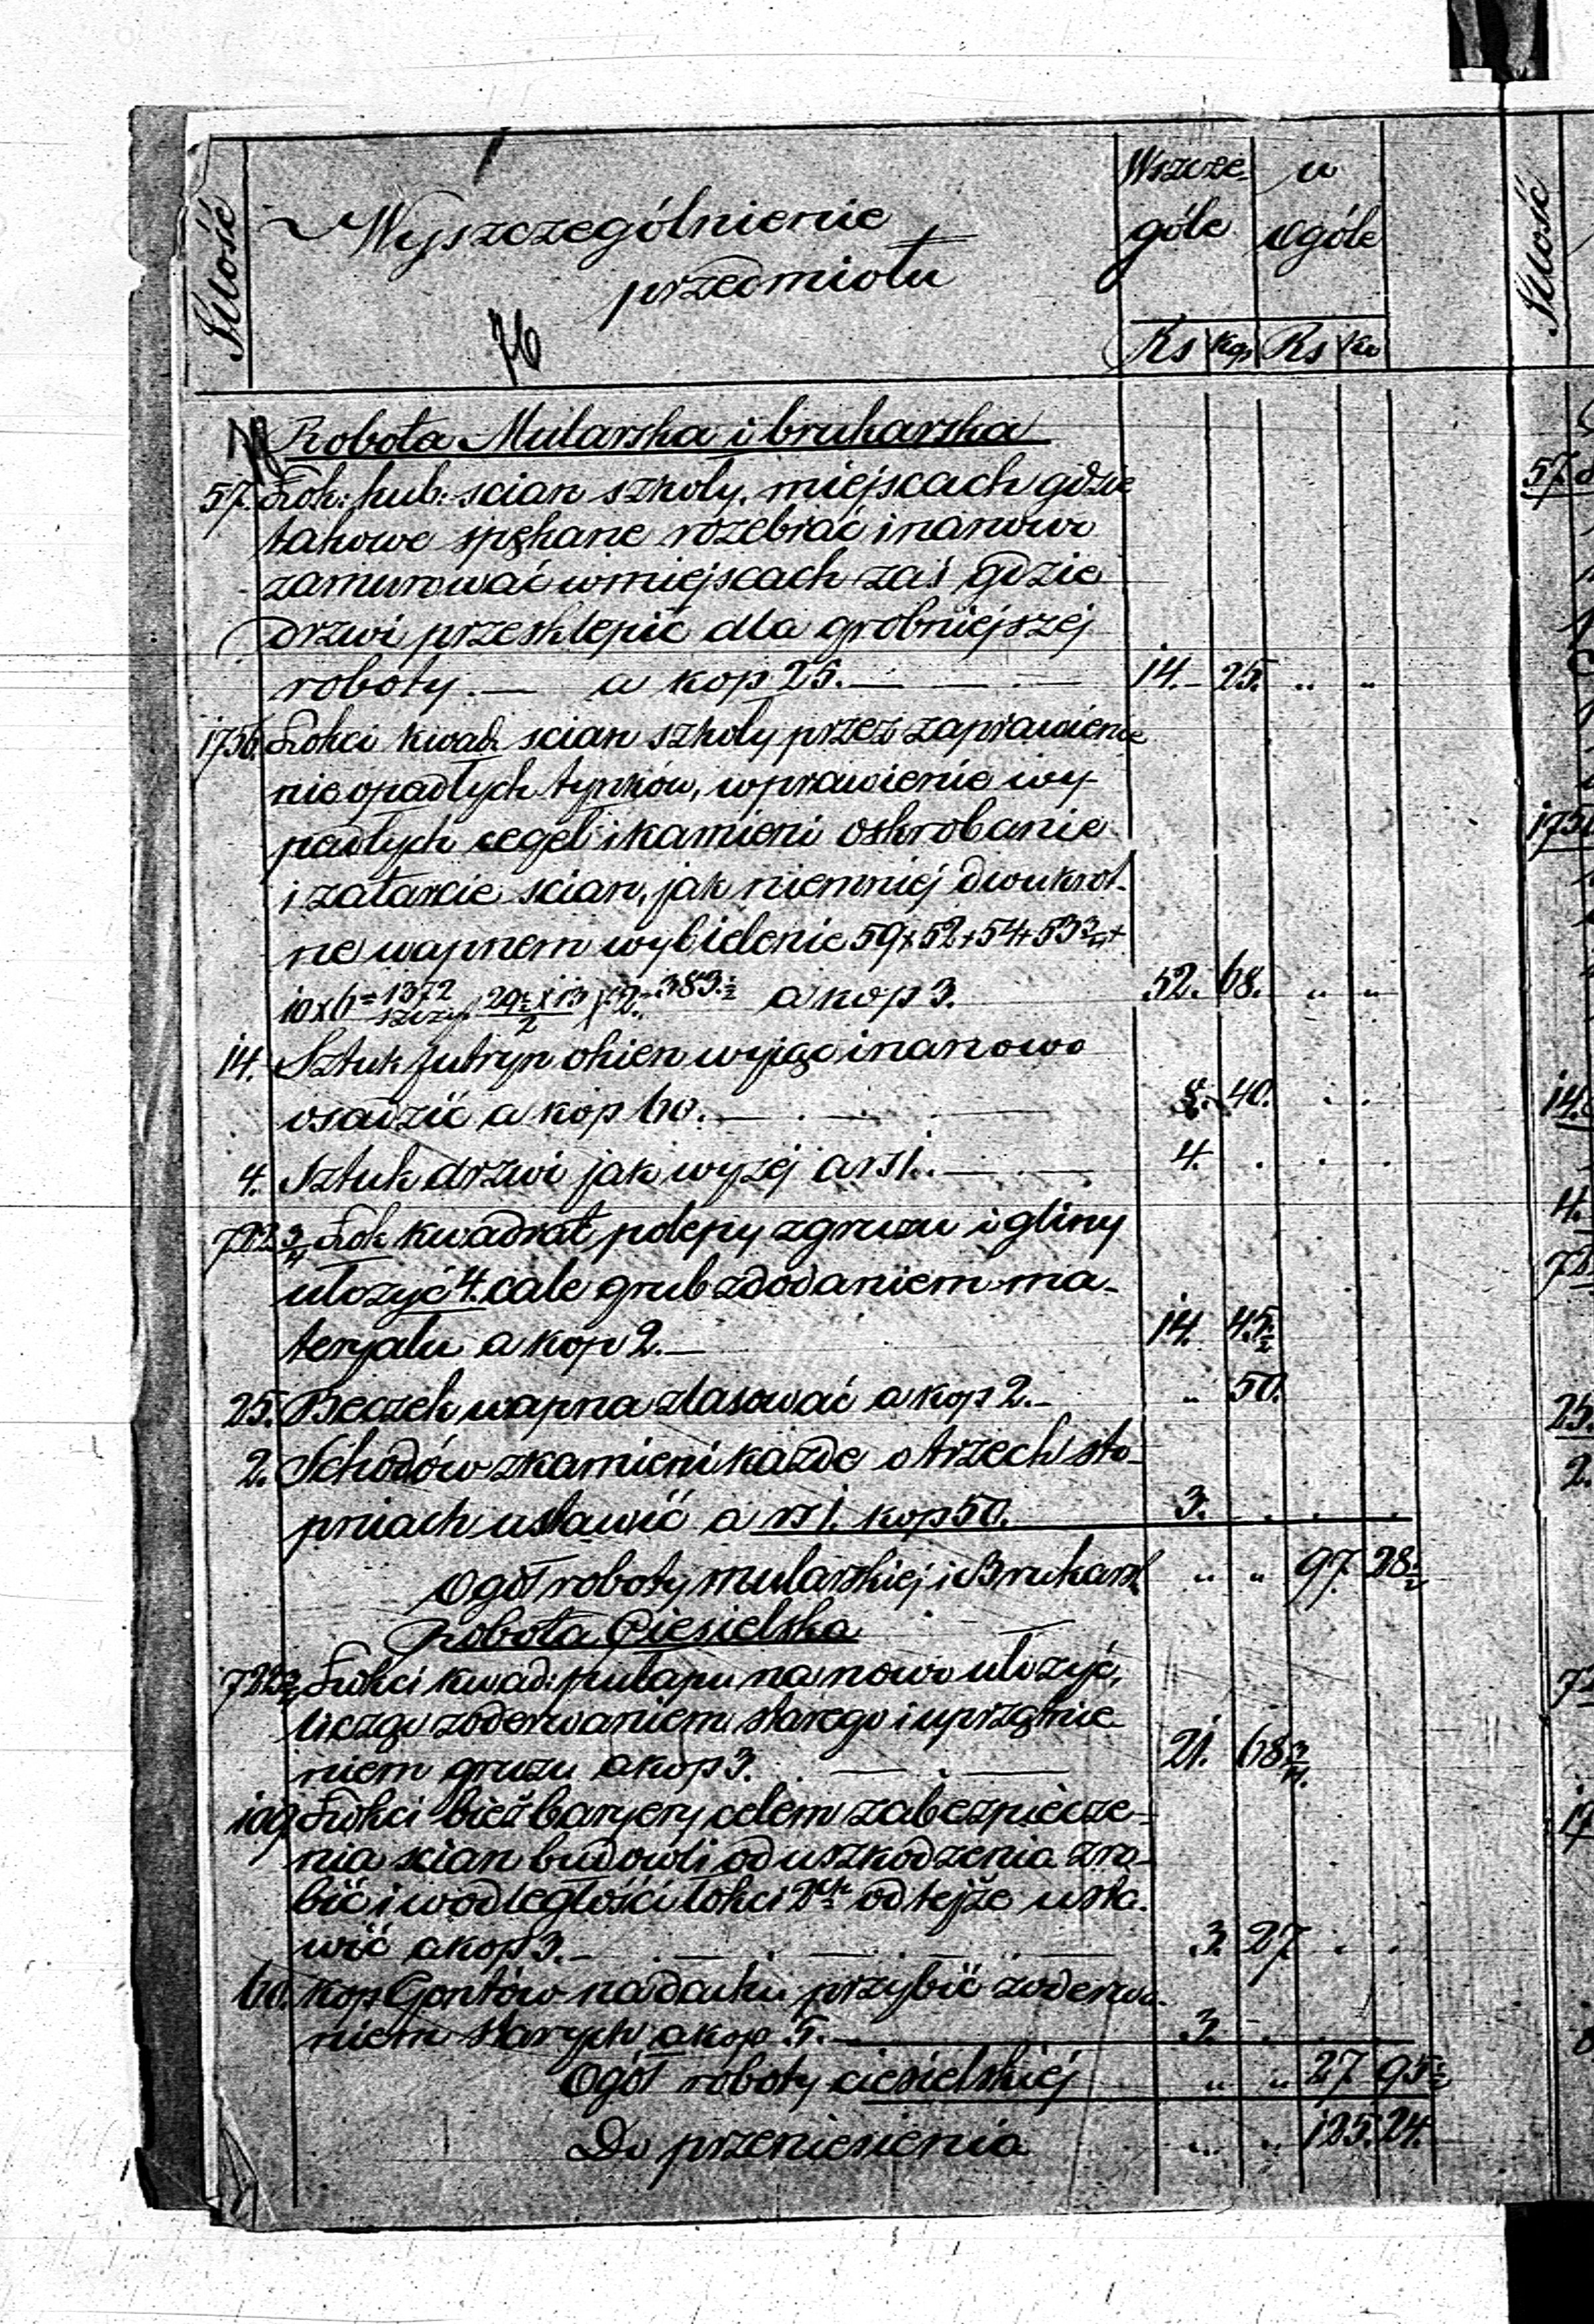 Ilość
Wyszczególnienie
przedmiotu
Wszcze-
góle
w
ogóle
76
Rs Kop Rs Ko
Robota Mularska i brukarska
57. Łok: kub: scian szkoły, miejscach gdzie
takowe spękane rozebrać i nanowo
zamurować w miejscach zaś gdzie
drzwi przesklepić dla grobniejszej
roboty. — a kop 25. — 14. 25. " "
1756. Łokci kwad. scian szkoły przez zaprawienie
nieopadłych tynków, wprawienie wy-
padłych cegel i kamieni oskrobanie
i zatarcie scian, jak niemniej dwukrot-
ne wapnem wybielenie 59 x 52 + 54 + 53 3/4 +
10 x 6 = 1372 29 1/2 x 13 / 2 x 2 = 383 1/2 a kop 3. 52. 68. " "
14. Sztuk futryn okien wyjąc i nanowo
osadzić a kop 60. — 8. 40. . .
4. Sztuk drzwi jak wyzej a rs 1. — 4. . . .
722 3/4 Łok kwadrat, polepy z gruzu i gliny
ułozyć 4. cale grub z dodaniem ma-
teryału a kop 2. — 14. 45 1/2
25. Beczek wapna zlasować a kop 2. — " 50.
2. Schodów z kamieni każde o trzech sto-
pniach ustawić a rs 1. kop 50. 3. . . .
Ogół roboty mularskiej i Brukarsk " " 97. 28 1/2
Robota Ciesielska
722 3/4 Łokci kwad: pułapu na nowo ułozyć,
licząc z oderwaniem starego i uprzątnie-
niem gruzu a kop 3. — 21. 68 3/4.
109 Łokci bież baryery celem zabezpiecze-
nia scian budowli od uszkodzenia zro-
bić i w odległości łokci 2ch od tejże usta-
wić a kop 3. — 3. 27 . .
60. kop Gontów na dachu przybić z oderwa-
niem starych a kop 5. — 3. - . .
Ogół roboty ciesielskiej " " 27 95 1/2
Do przeniesienia " " 125. 24.
Ilość
57.
14.
4.
25.
2.